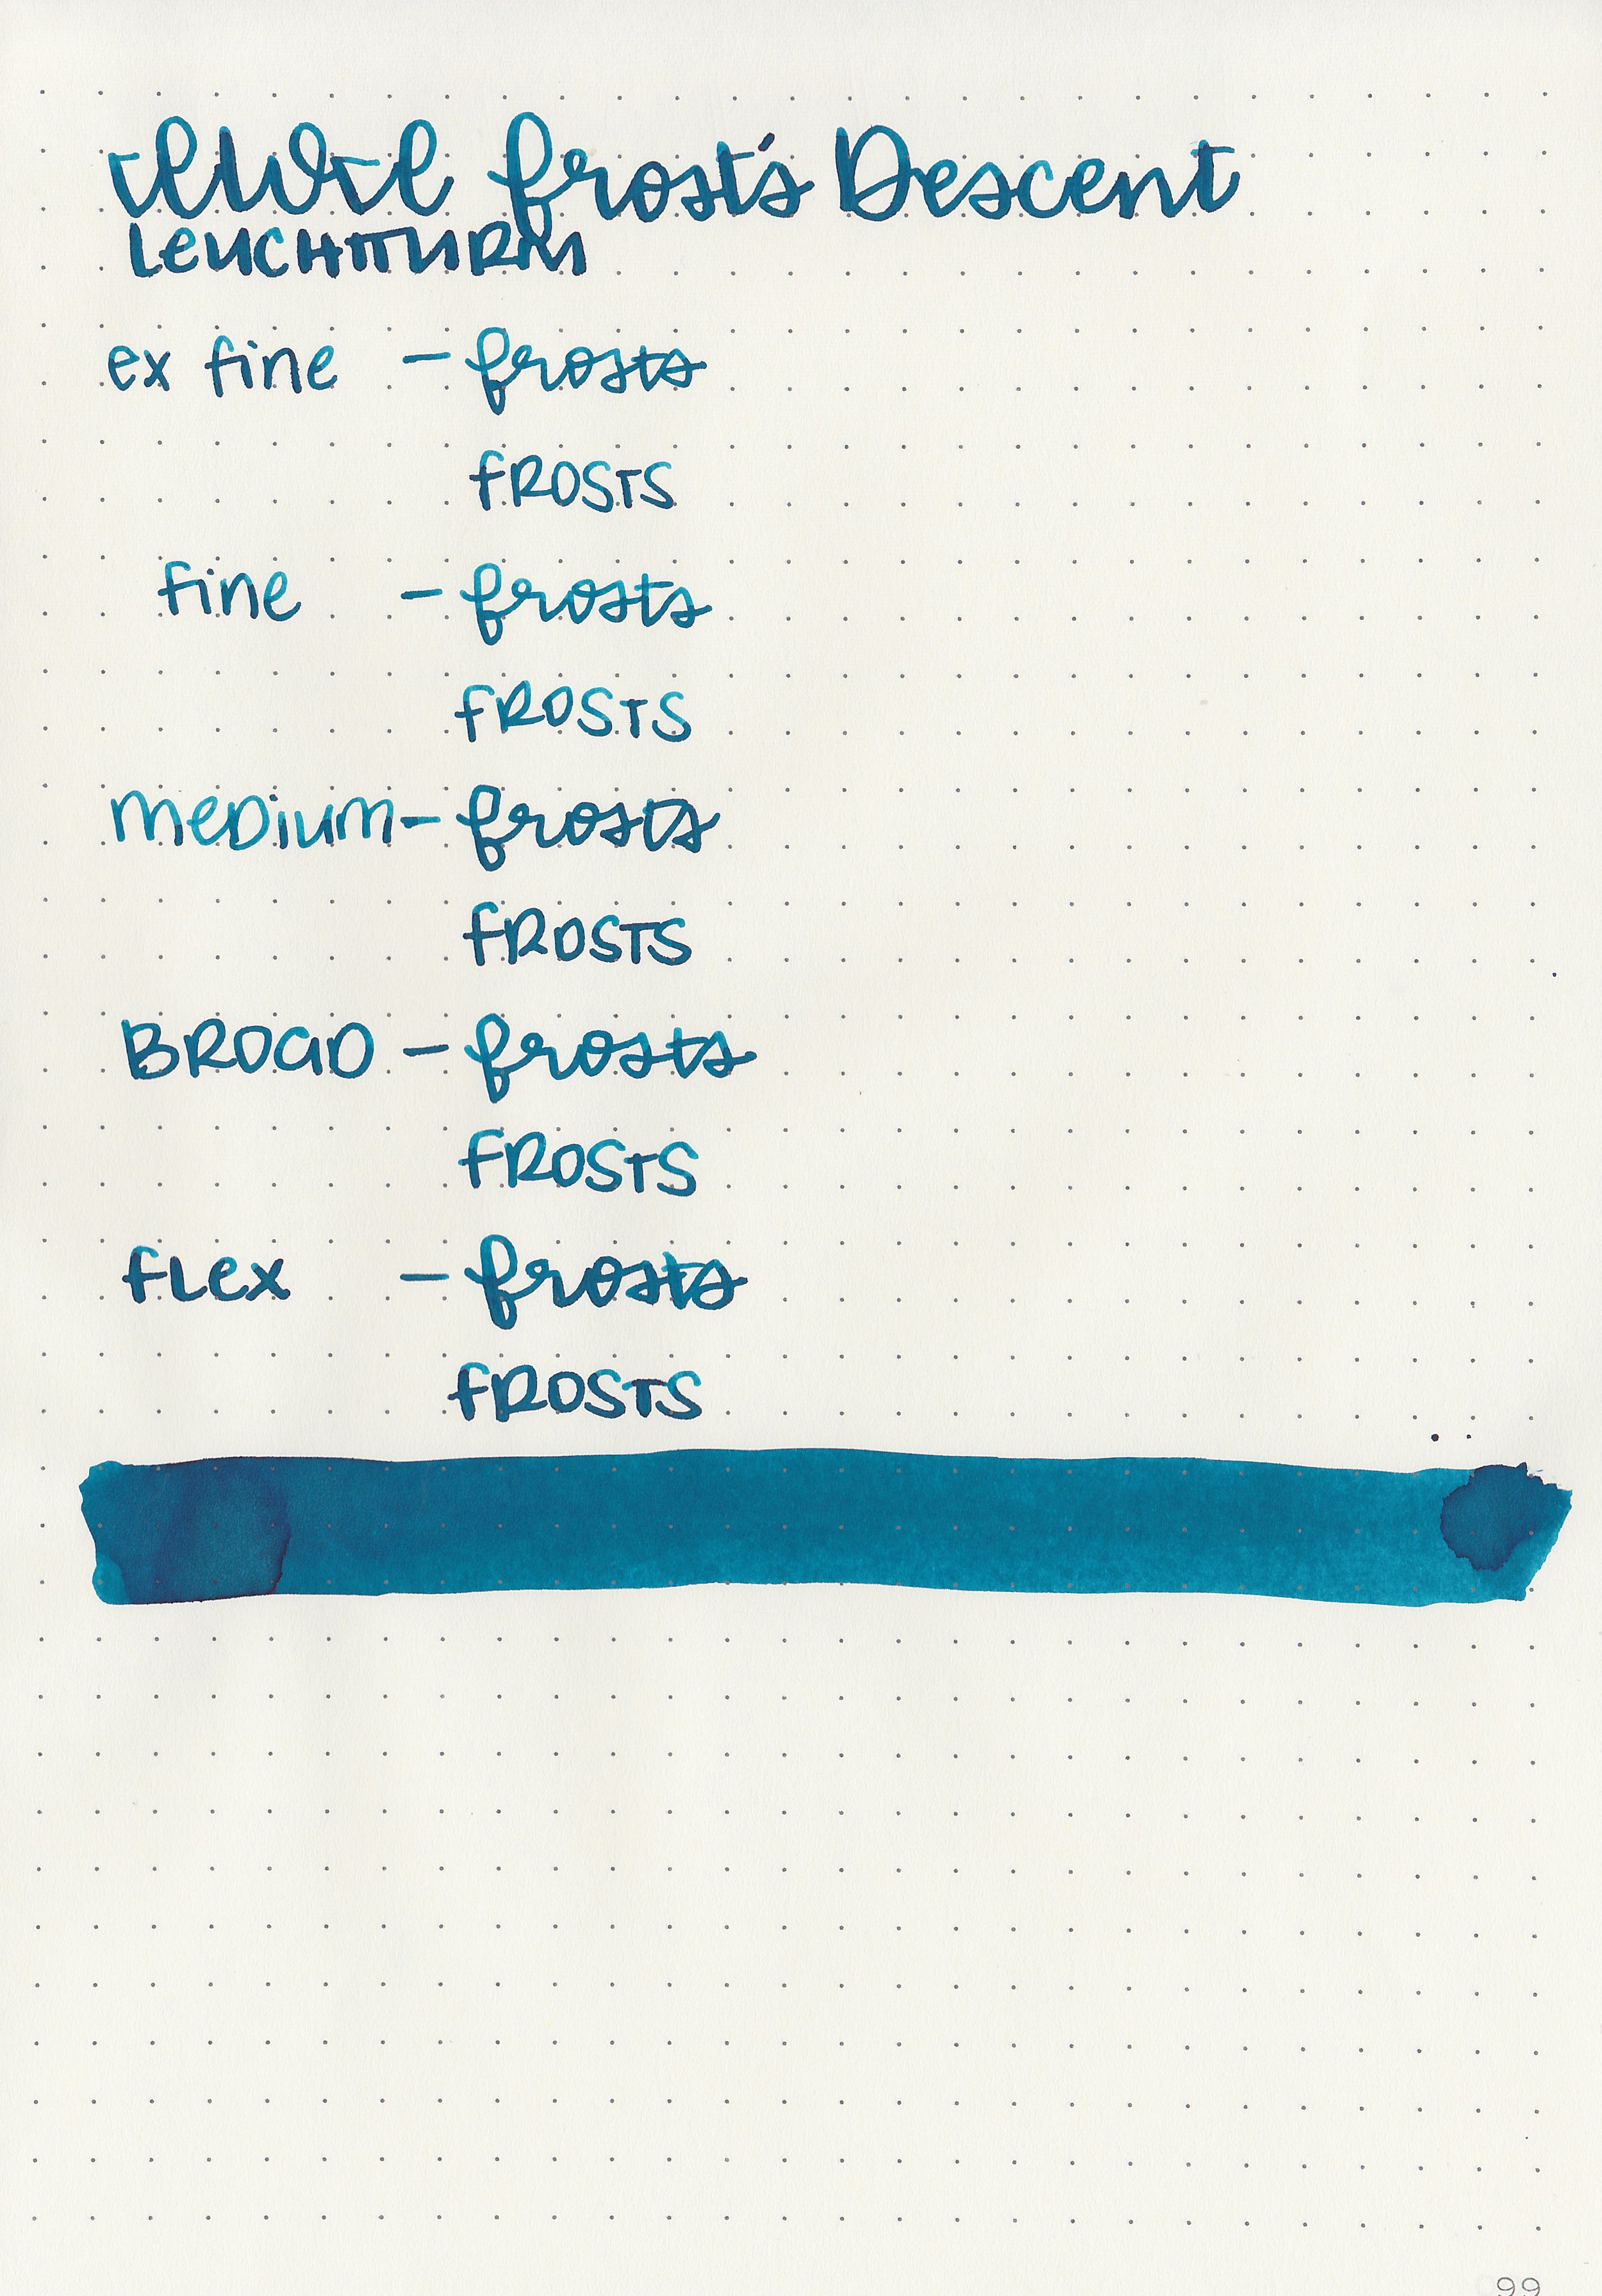 IWI frost's Descent
LeuCHTTURM
ex fine - frosts
fROSTS
fine - frosts
fROSTS
meDium - frosts
fROSTS
BROaD - frosts
fROSTS
fLex - frosts
fROSTS
99